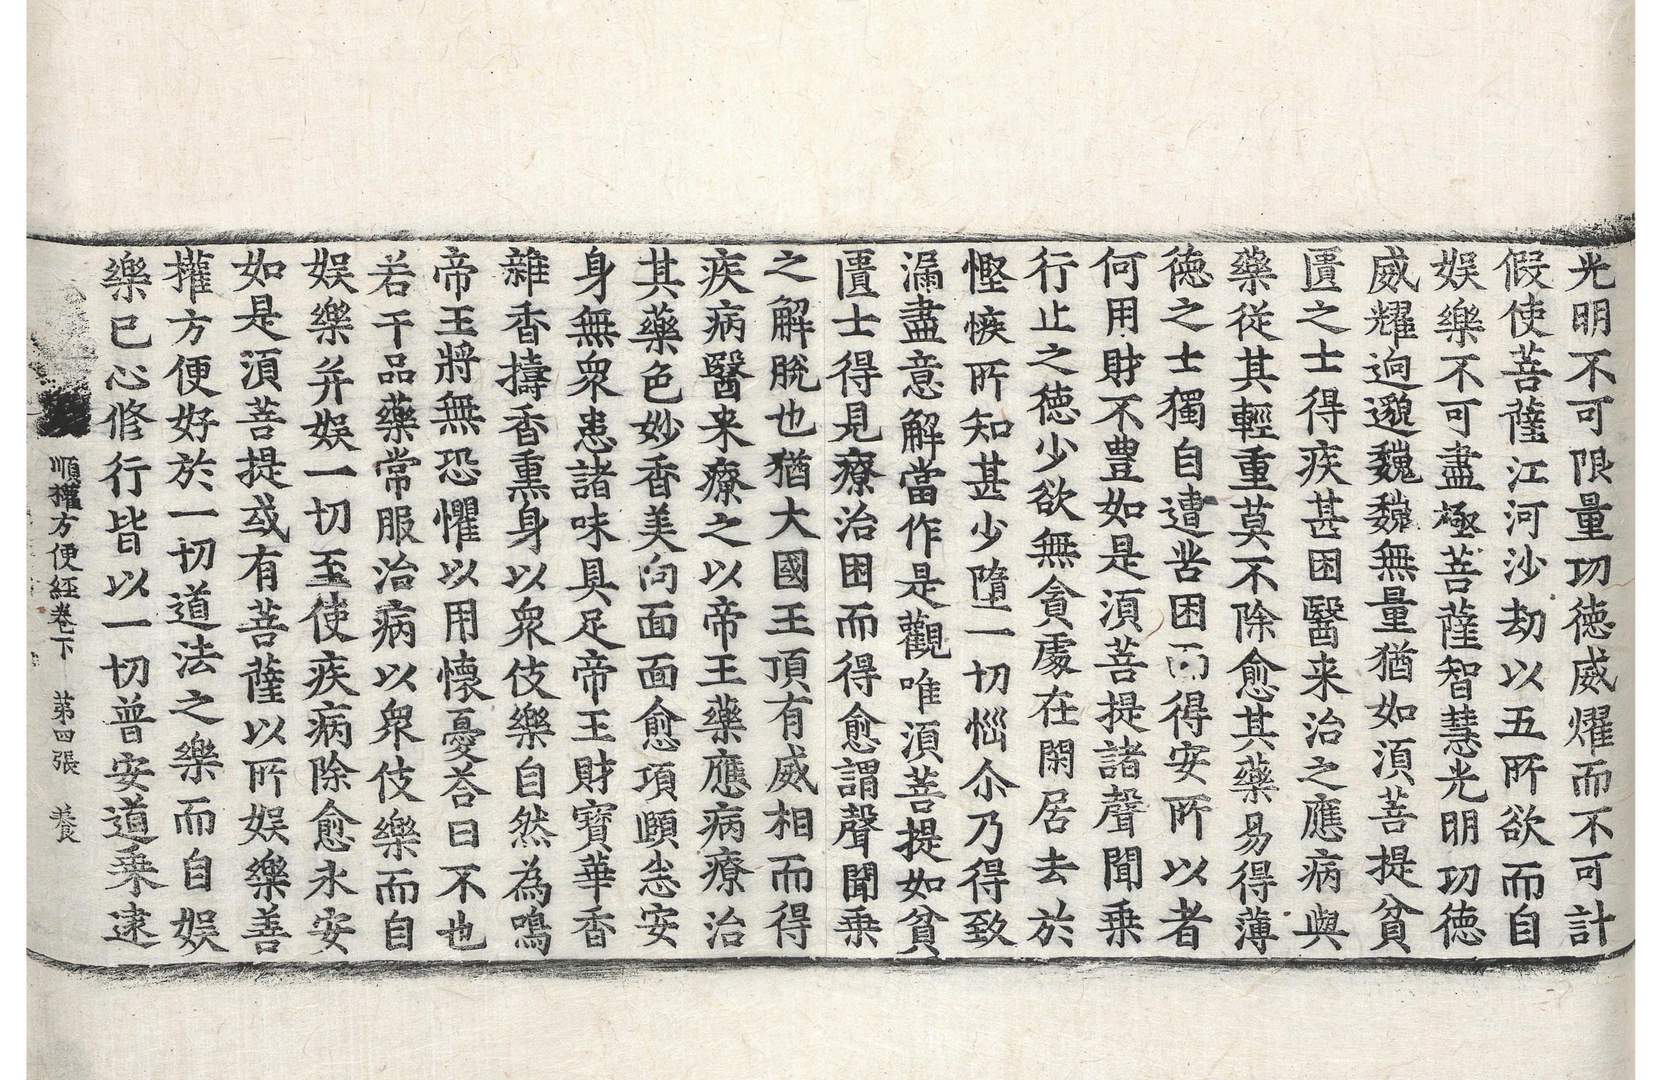 光明不可限量功徳威燿而不可計
假使菩薩江河沙劫以五所欲而自
娛樂不可盡極菩薩智慧光明功徳
威耀逈邈巍巍無量猶如湏菩提貧
匱之士得疾甚困醫来治之應病與
藥從其輕重莫不除愈其藥易得薄
徳之士獨自遭苦困而得安所以者
何用財不豊如是湏菩提諸聲聞乗
行止之徳少欲無貪處在閑居去於
慳嫉所知甚少墮一切惱尒乃得致
漏盡意解當作是觀唯湏菩提如貧
匱士得見療治困而得愈謂聲聞乗
之解脫也猶大國王頂有威相而得
疾病醫来療之以帝王藥應病療治
其藥色妙香美向面面愈項頤恙安
身無衆患諸味具足帝王財寶華香
雜香擣香熏身以衆伎樂自然為鳴
帝王將無恐懼以用懐憂荅曰不也
若干品藥常服治病以衆伎樂而自
娛樂并娛一切至使疾病除愈永安
如是湏菩提或有菩薩以所娛樂善
權方便好於一切道法之樂而自娛
樂已心修行皆以一切普安道乗逮
順權方便経卷下 第四張 養